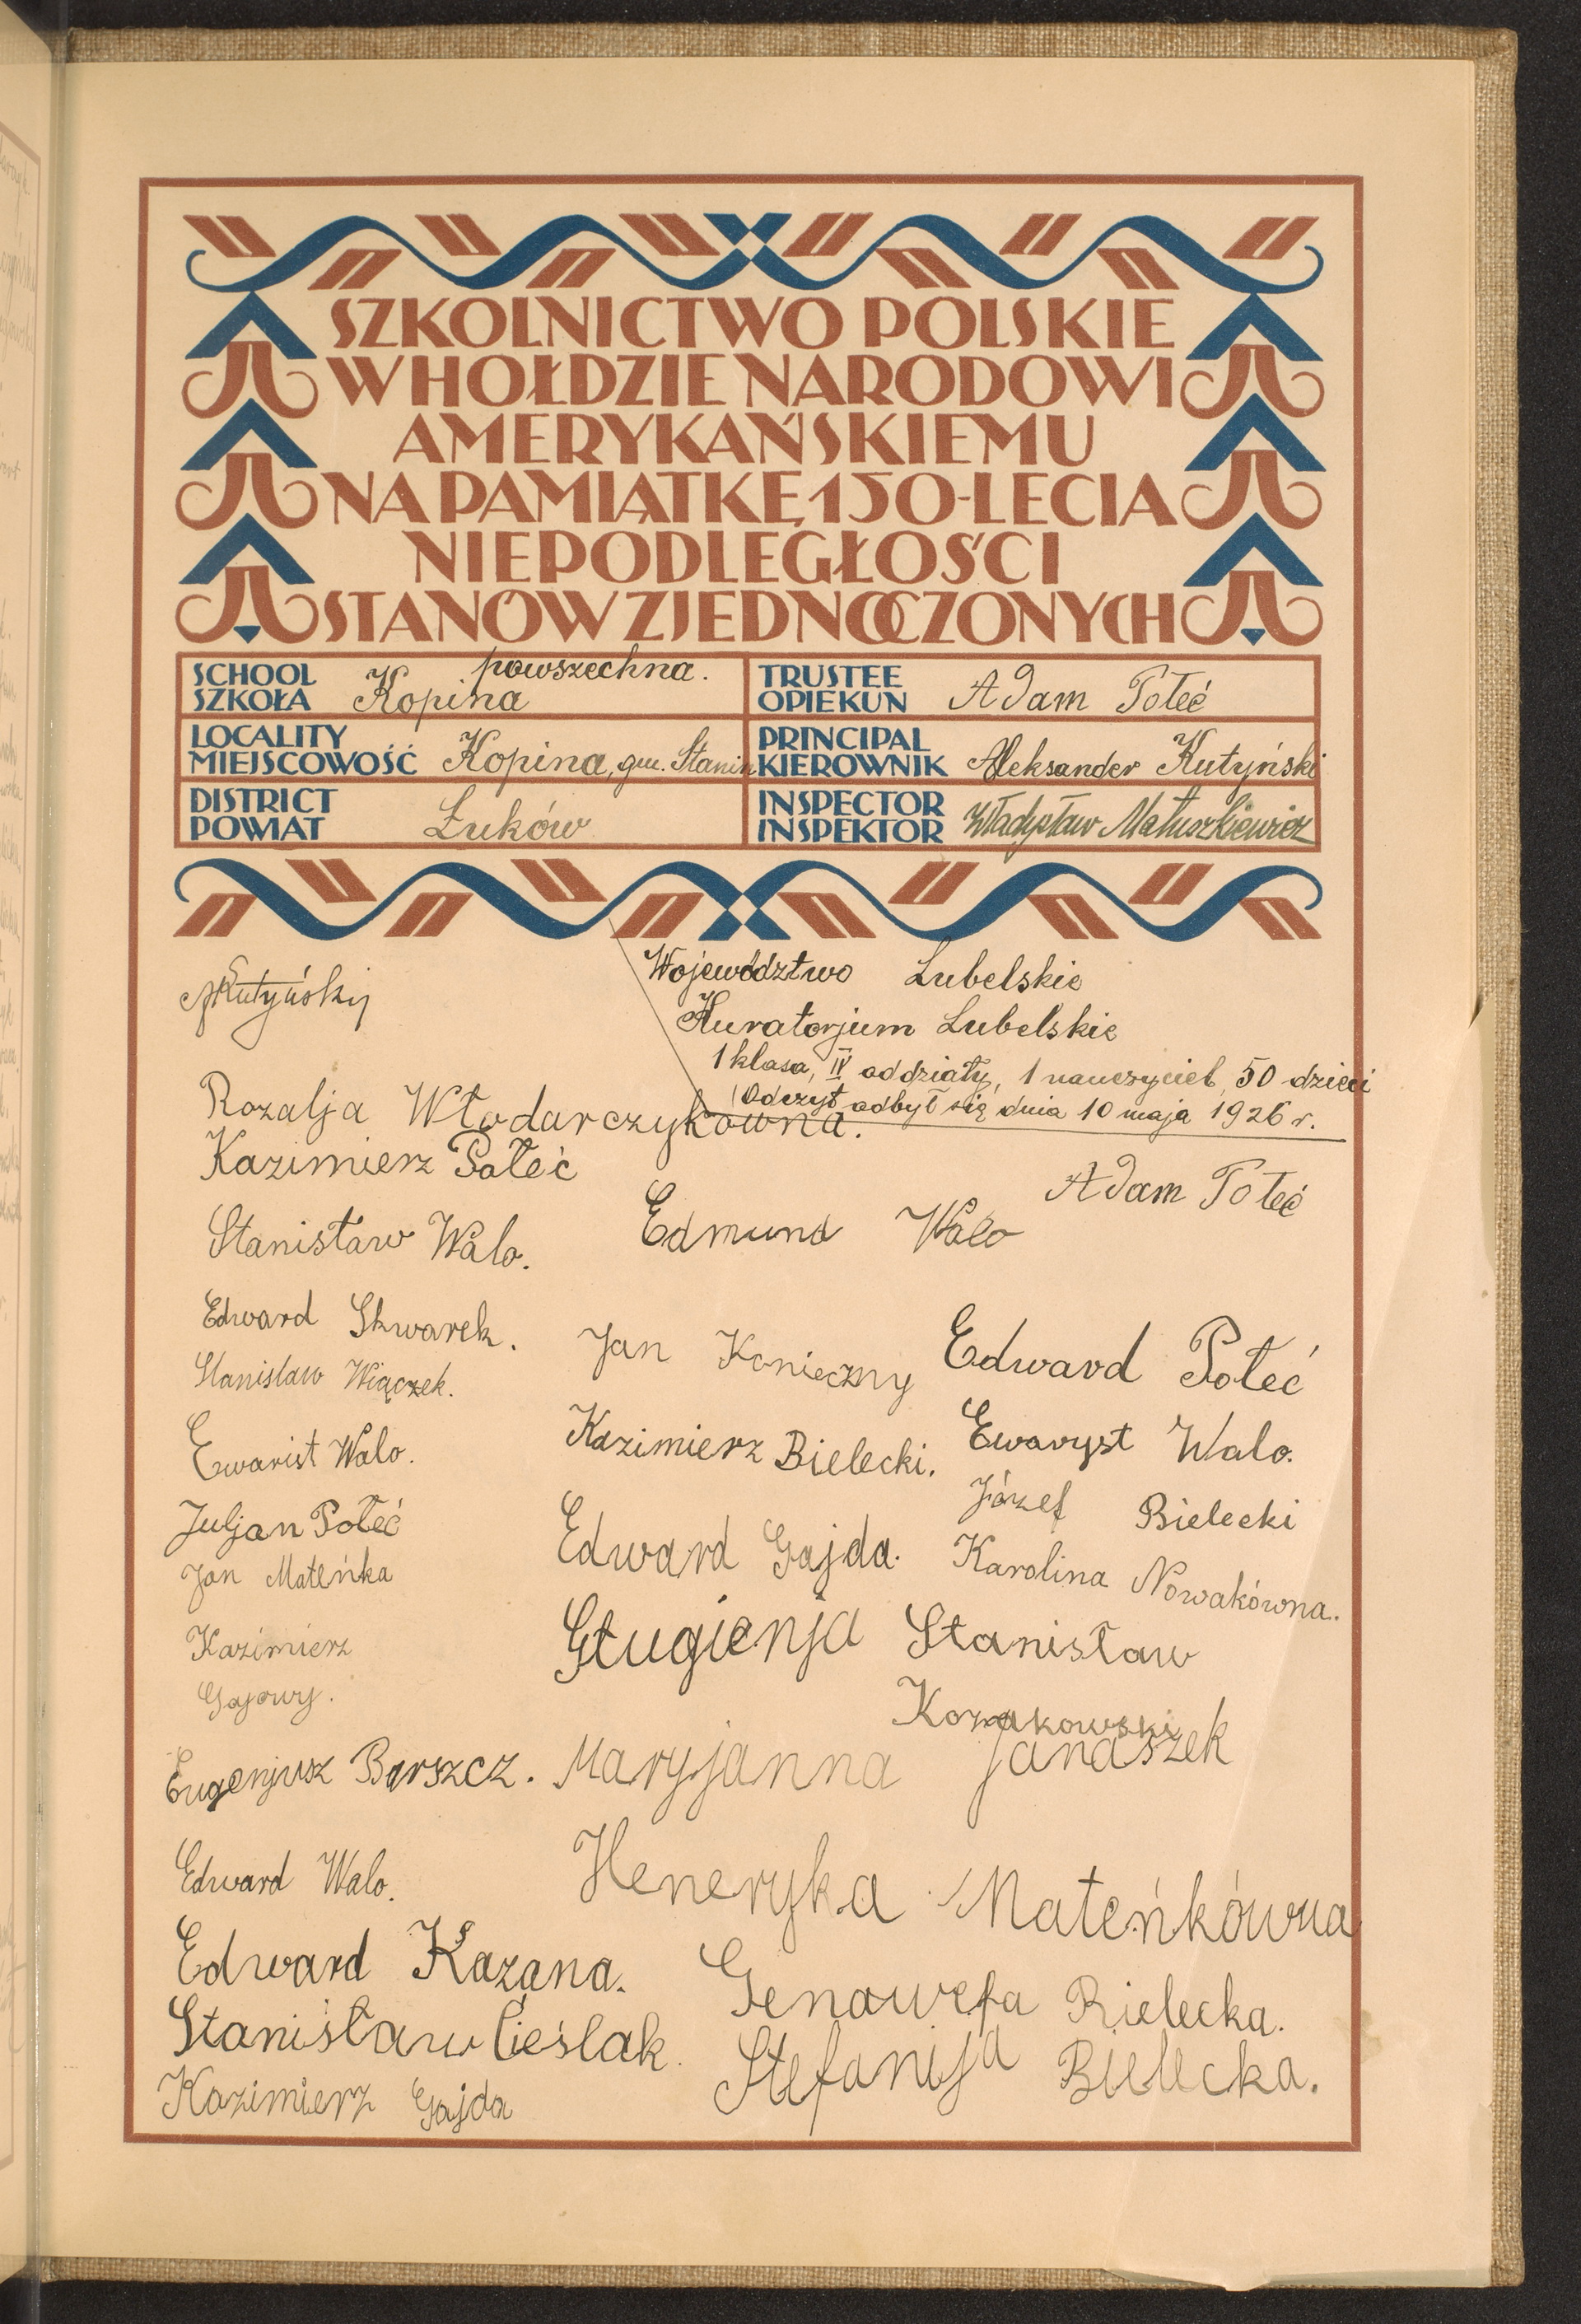 SZKOLNICTWO POLSKIE
W HOŁDZIE NARODOWI
AMERYKAŃSKIEMU
NA PAMIĄTKĘ 150-LECIA
NIEPODLEGŁOŚCI
STANÓW ZJEDNOCZONYCH
SCHOOL
SZKOŁA
powszechna.
Kopina
TRUSTEE
OPIEKUN
Adam Połeć
LOCALITY
MIEJSCOWOŚĆ
Kopina, gm. Stanin
PRINCIPAL
KIEROWNIK
Aleksander Kutyński
DISTRICT
POWIAT
Łuków
INSPECTOR
INSPEKTOR
Władysław Matuszkiewicz
AKutyński
Województwo Lubelskie
Kuratorjum Lubelskie
1 klasa, IV oddziały, 1 nauczyciel, 50 dzieci
Odczyt odbył się dnia 10 maja 1926 r.
Rozalja Włodarczykówna.
Kazimierz Połeć
Adam Połeć
Stanisław Walo.
Edmund Walo
Edward Skwarek.
Jan Konieczny
Edward Połeć
Stanislaw Wiączek.
Ewarist Walo.
Kazimierz Bielecki.
Ewaryst Walo.
Juljan Połeć
Józef Bielecki
Jan Mateńka
Edward Gajda.
Karolina Nowakówna.
Kazimierz
Gajowy.
Gługienja Stanisław
Kozakowski
Eugenjusz Barszcz.
Maryjanna Janaszek
Edward Walo.
Heneryka Mateńkówna
Edward Kazana.
Genowefa Bielecka.
Stanisław Cieślak.
Stefanija Bielecka.
Kazimierz Gajda